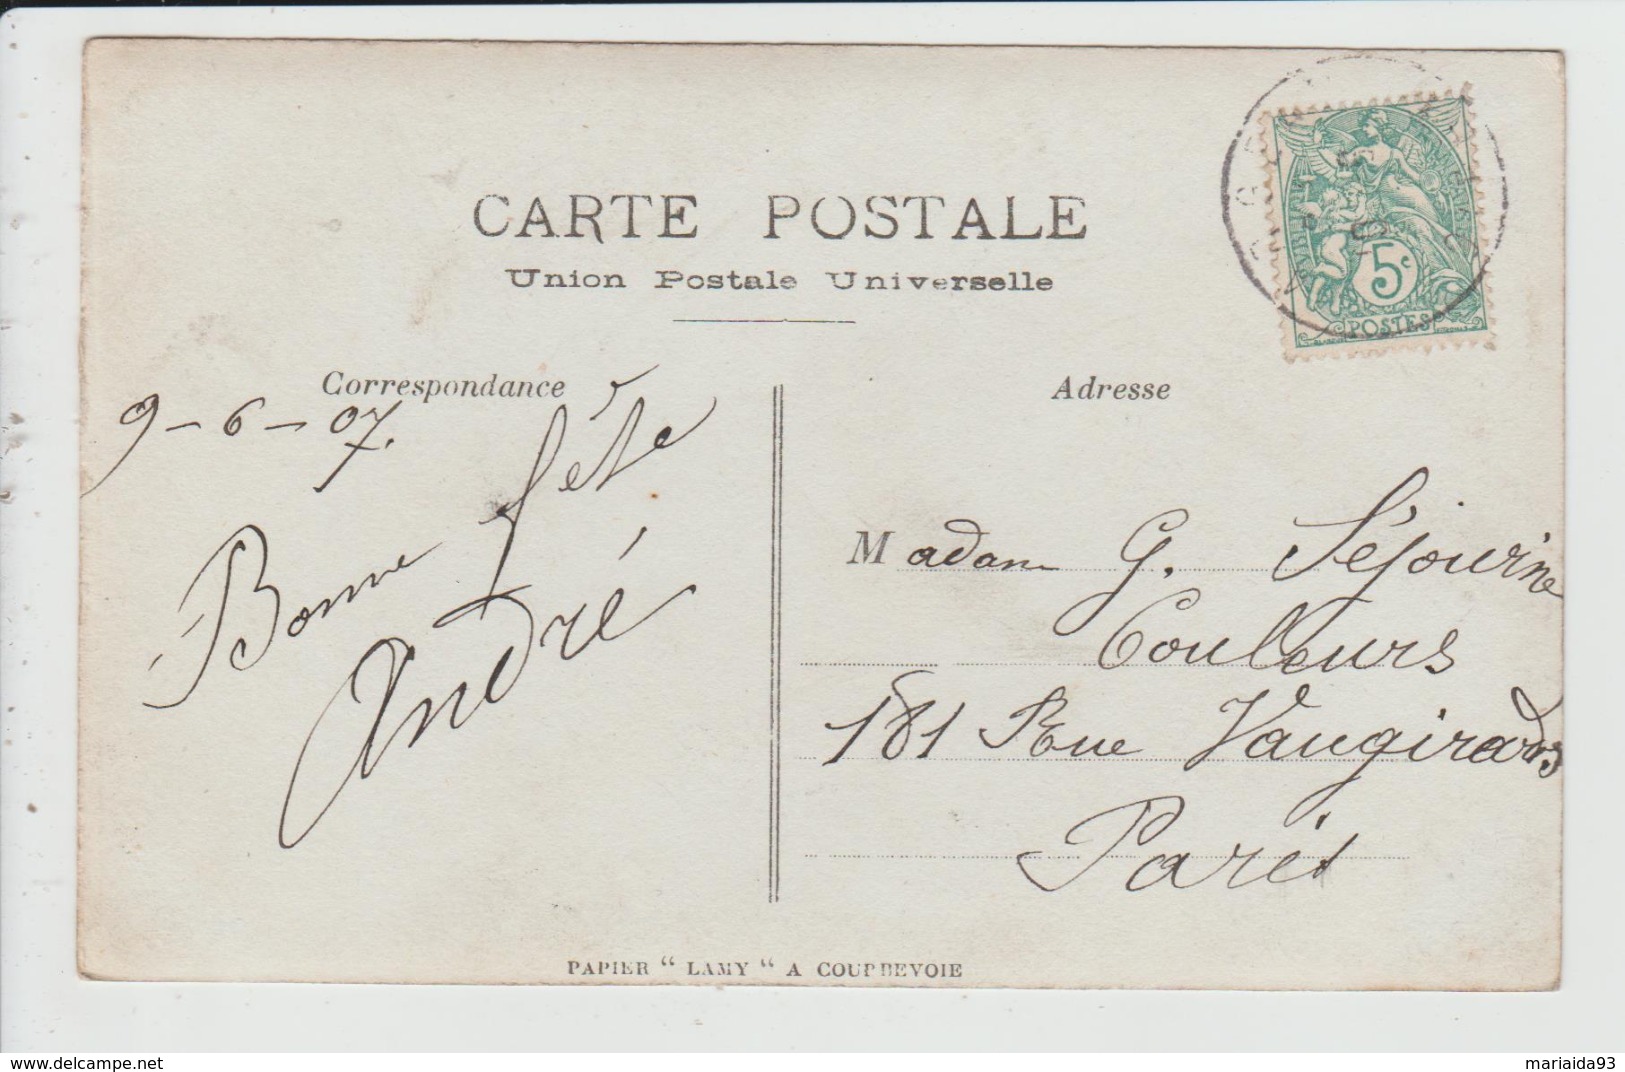 CARTE POSTALE
Union Postale Universelle
Correspondance
Adresse
9-6-07.
Bonne fête
André
Madame G. Séjourné
Couleurs
181 Rue Vaugirard
Paris
5c
POSTES
PAPIER “ LAMY “ A COURBEVOIE
www.delcampe.net
mariaida93